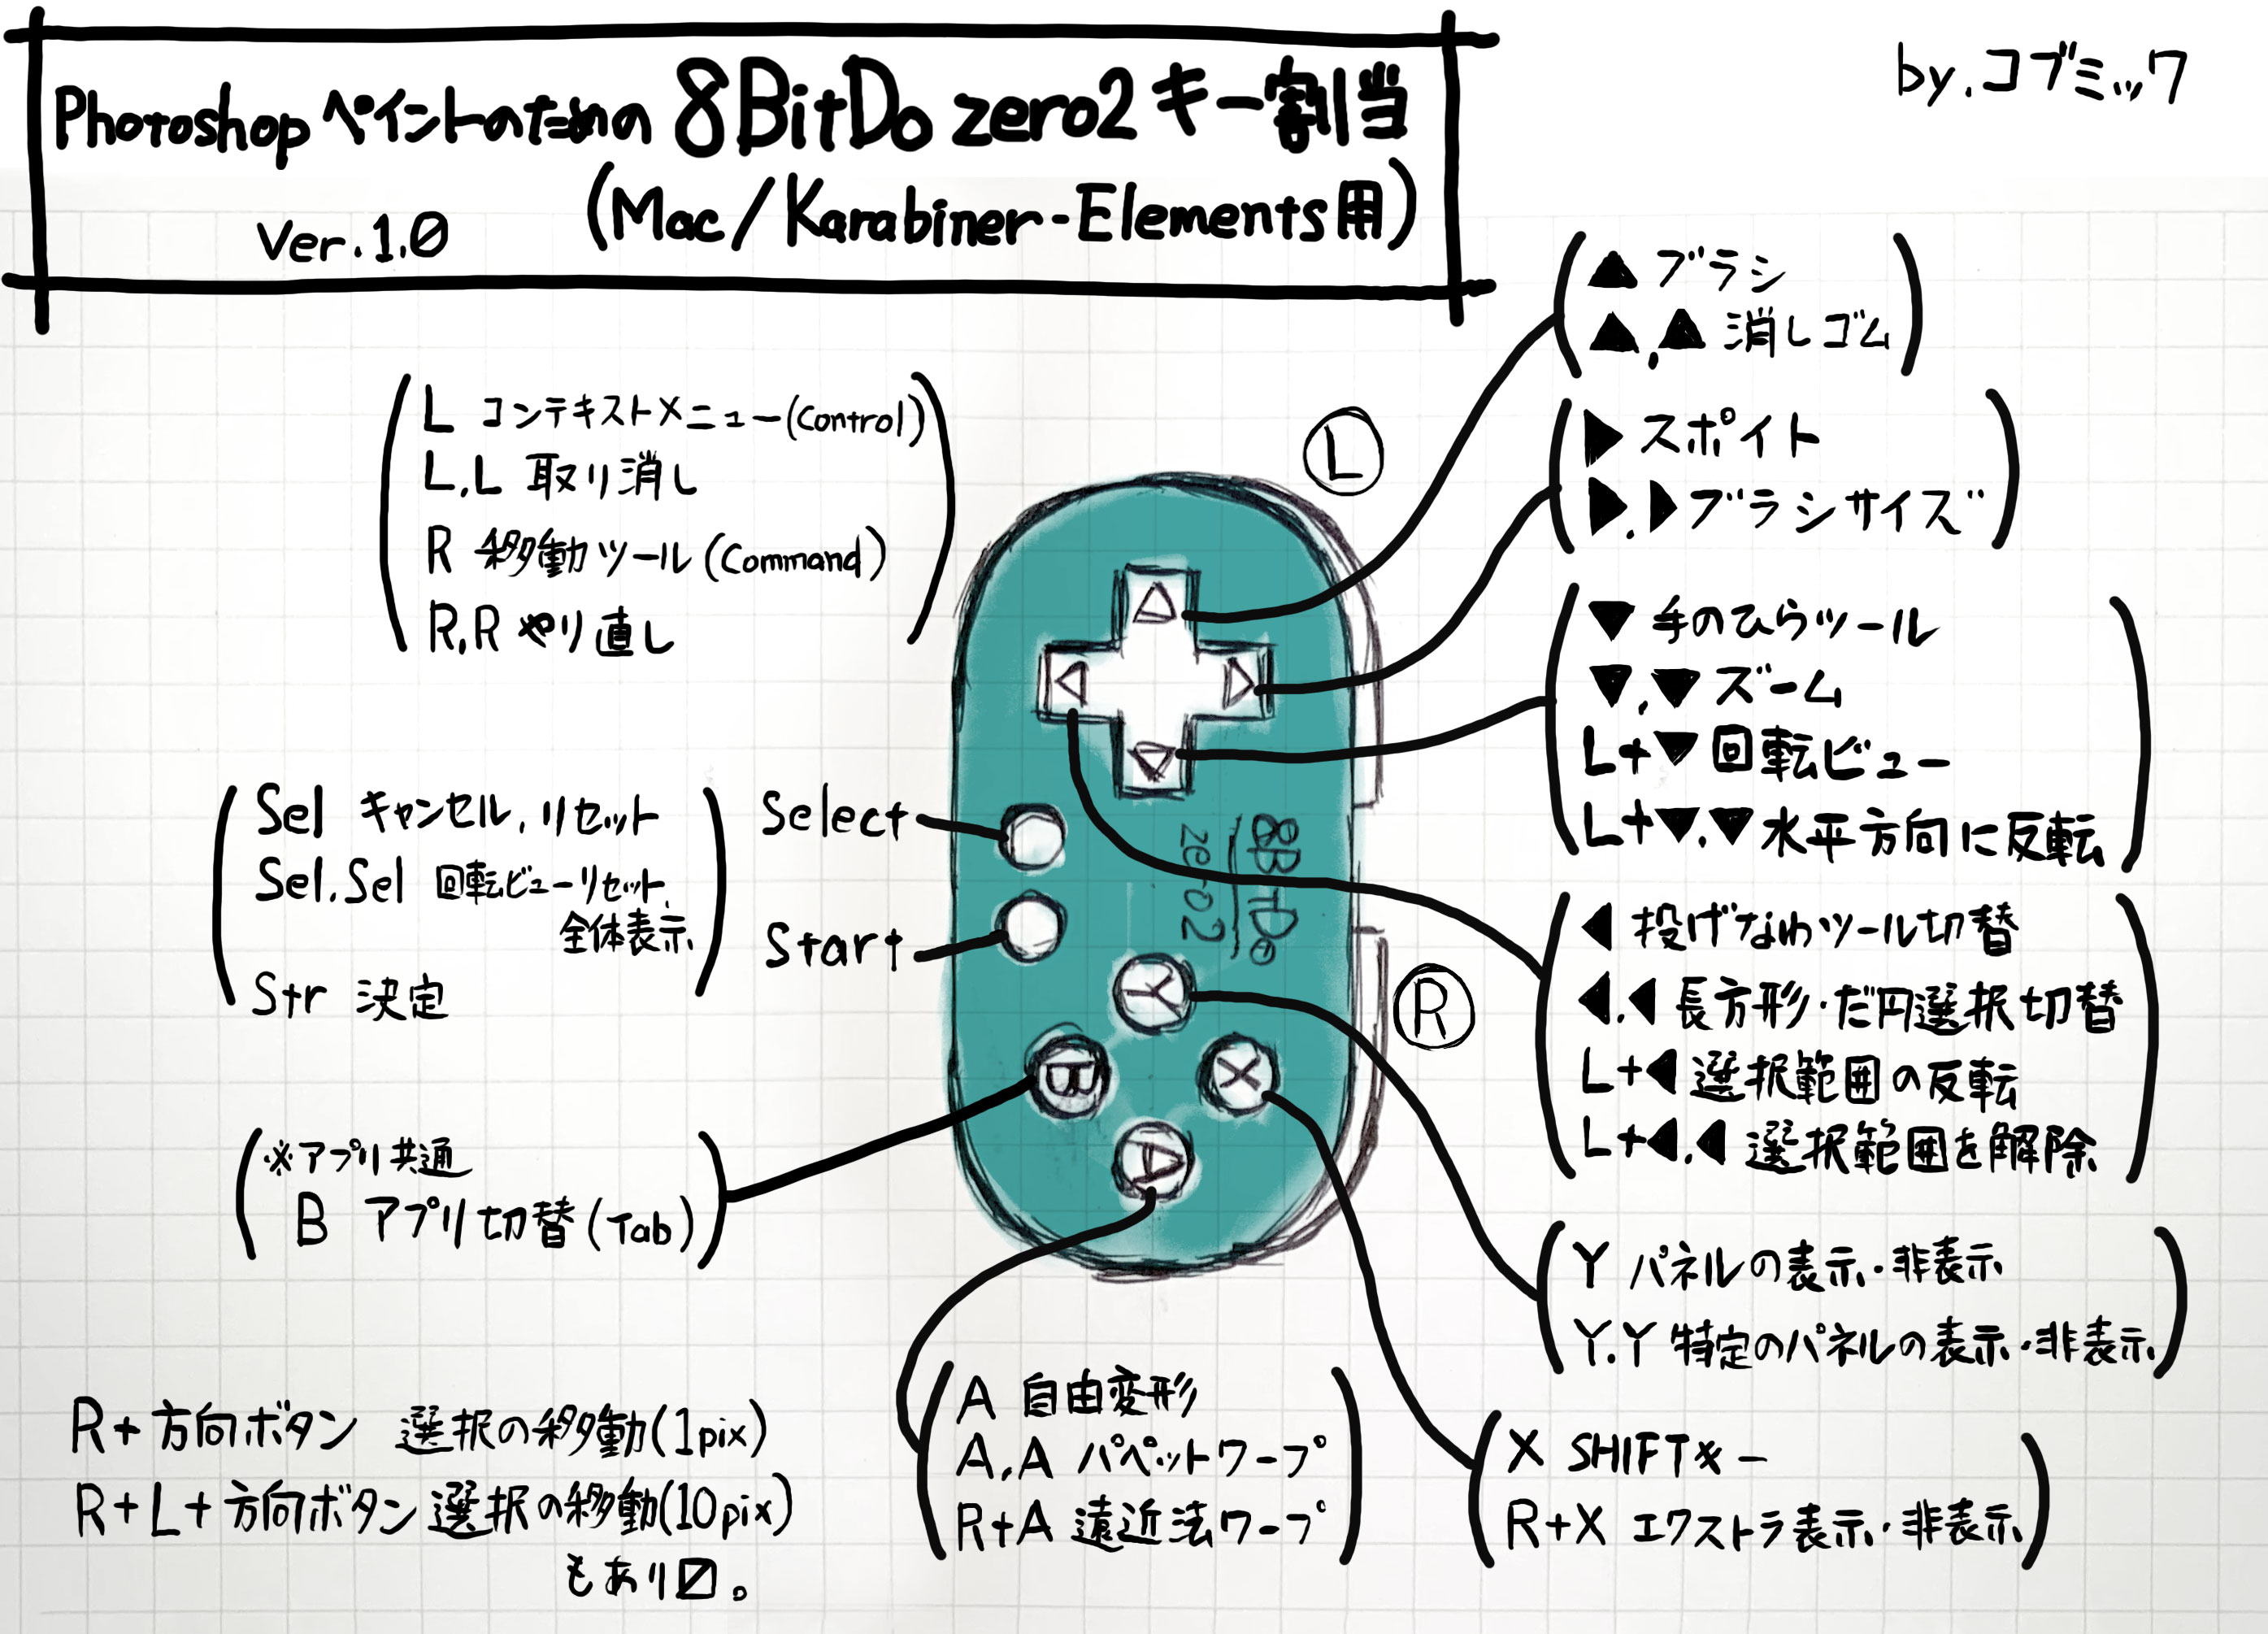 Photoshop ペイントのための 8BitDo zero2 キー割当
(Mac/Karabiner-Elements用)
Ver.1.0
by.コブミック
L コンテキストメニュー(Control)
L,L 取り消し
R 移動ツール(Command)
R,R やり直し
Sel キャンセル,リセット
Sel,Sel 回転ビューリセット,
全体表示
Str 決定
※アプリ共通
B アプリ切替(Tab)
R+方向ボタン 選択の移動(1pix)
R+L+方向ボタン 選択の移動(10pix)
もあり〼。
L
R
Select
Start
8BitDo
zero2
Y
B
X
A
▲ ブラシ
▲,▲ 消しゴム
▶ スポイト
▶,▶ ブラシサイズ
▼ 手のひらツール
▼,▼ ズーム
L+▼ 回転ビュー
L+▼,▼ 水平方向に反転
◀ 投げなわツール切替
◀,◀ 長方形・だ円選択切替
L+◀ 選択範囲の反転
L+◀,◀ 選択範囲を解除
Y パネルの表示・非表示
Y,Y 特定のパネルの表示・非表示
A 自由変形
A,A パペットワープ
R+A 遠近法ワープ
X SHIFTキー
R+X エクストラ表示・非表示